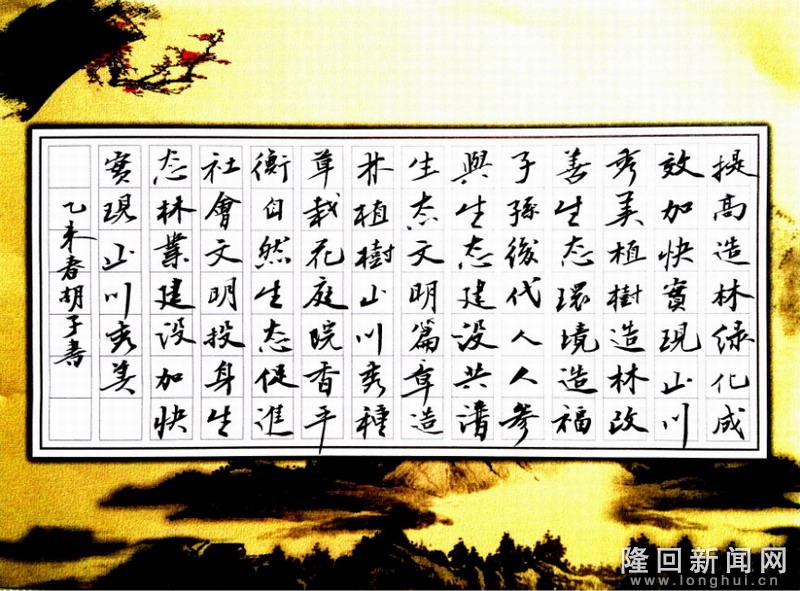 提高造林绿化成
效加快實現山川
秀美植樹造林改
善生态環境造福
子孫後代人人參
與生态建设共譜
生态文明篇章造
林植樹山川秀種
草栽花庭院香平
衡自然生态促進
社會文明投身生
态林業建设加快
實現山川秀美
乙未春胡子書
隆回新闻网
www.longhui.cn